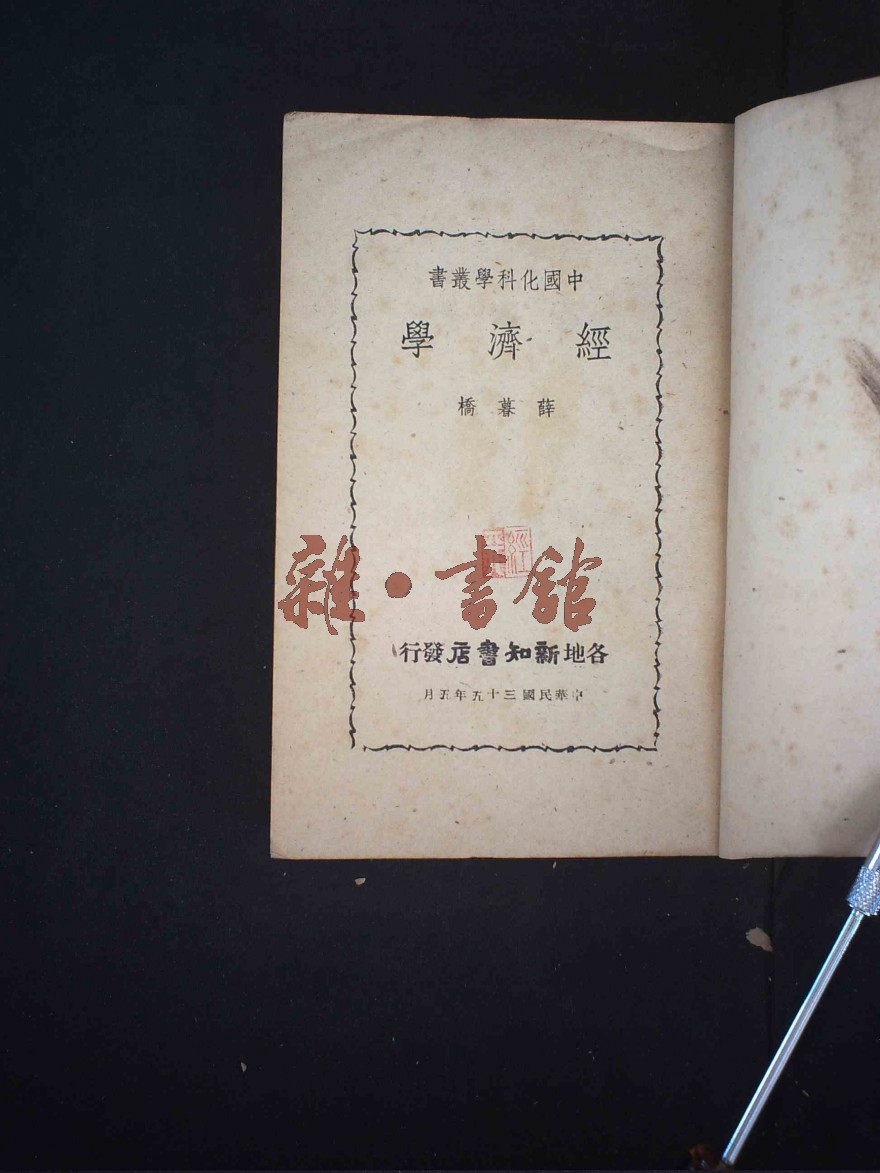 中國化科學叢書
經濟學
薛暮橋
雜·書館
各地新知書店發行
中華民國三十五年五月